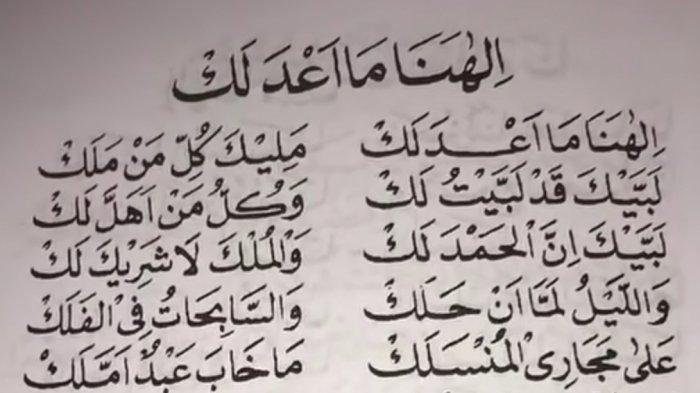 اِلٰهَنَا مَا اَعْدَ لَكْ
اِلٰهَنَا مَا اَعْدَلَكْ مَلِيْكَ كُلِّ مَنْ مَلَكْ
لَبَّيْكَ قَدْ لَبَّيْتُ لَكْ وَكُلُّ مَنْ اَهَلَّ لَكْ
لَبَّيْكَ اِنَّ الْحَمْدَ لَكْ وَالْمُلْكَ لَا شَرِيْكَ لَكْ
وَاللَّيْلُ لَمَّا اَنْ حَلَكْ وَالسَّابِحَاتُ فِى الْفَلَكْ
عَلٰى مَجَارِى الْمُنْسَلَكْ مَا خَابَ عَبْدٌ اَمَّلَكْ